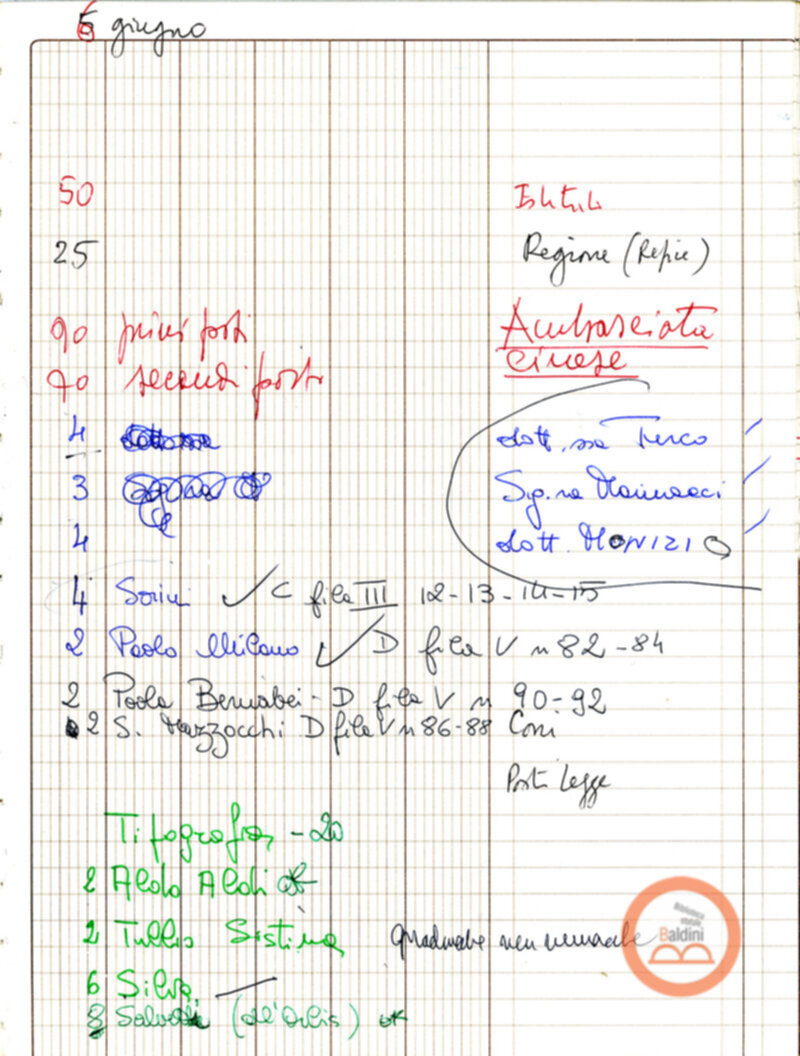 6 giugno
50 Istituto
25 Regione (Repice)
90 primi posti Ambasciata
70 secondi posti cinese
4 dott.ssa Turco
3 Sig.na
4 dott. MONIZIO
4 Sorini ✓ C fila III 12-13-14-15
2 Paolo Milano ✓ D fila V n 82-84
2 Paola Bernabei - D fila V n 90-92
2 S. Mazzocchi D fila V n 86-88 Coni
Posti Legge
Tipografia - 20
2 Aldo Aldi ok
2 Tullio Sistina
6 Silva
8 (dell'Orbis) ok
Biblioteca
statale
Baldini